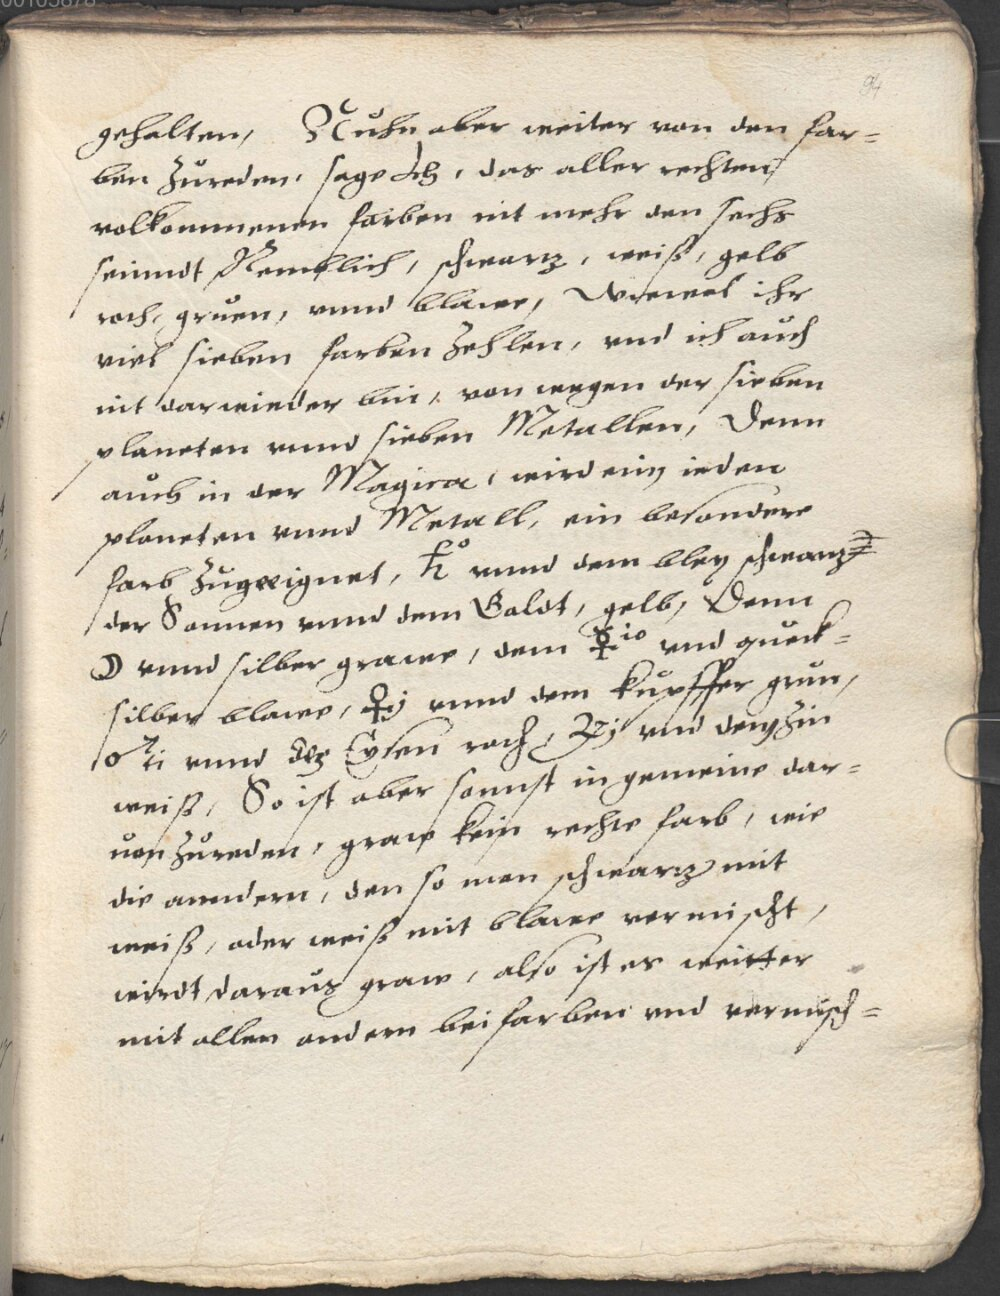 00105878
94
gehalten, Nuhn aber weiter von den far=
ben zureden, sage Ich, das aller rechten
volkommenen farben nit mehr den sechs
seiindt Nemblich, schwartz, weiß, gelb
roth, gruen, unnd blawe, Wiewol ihr
viel sieben farben zehlen, und ich auch
nit darwieder bin, von wegen der sieben
planeten unnd sieben Metallen, Denn
auch in der Magica, wird einem ieden
planeten unnd Metall, ein besondere
farb zugeeignet, ♄o unnd dem bley schwartz
der Sonnen unnd dem Goldt, gelb, Denn
☽ unnd silber grawe, dem ☿io und queck=
silber blawe, ♀j unnd dem kupffer grün,
♂ti unnd dem Eysen roth, ♃j und dem Zin
weiß, So ist aber sonnst in gemeine dar=
uon zureden, graw kein rechte farb, wie
die anndern, den so man schwartz mit
weiß, oder weiß mit blawe vermischt,
wirdt daraus graw, also ist es weitter
mit allen andern beifarben und vermisch=